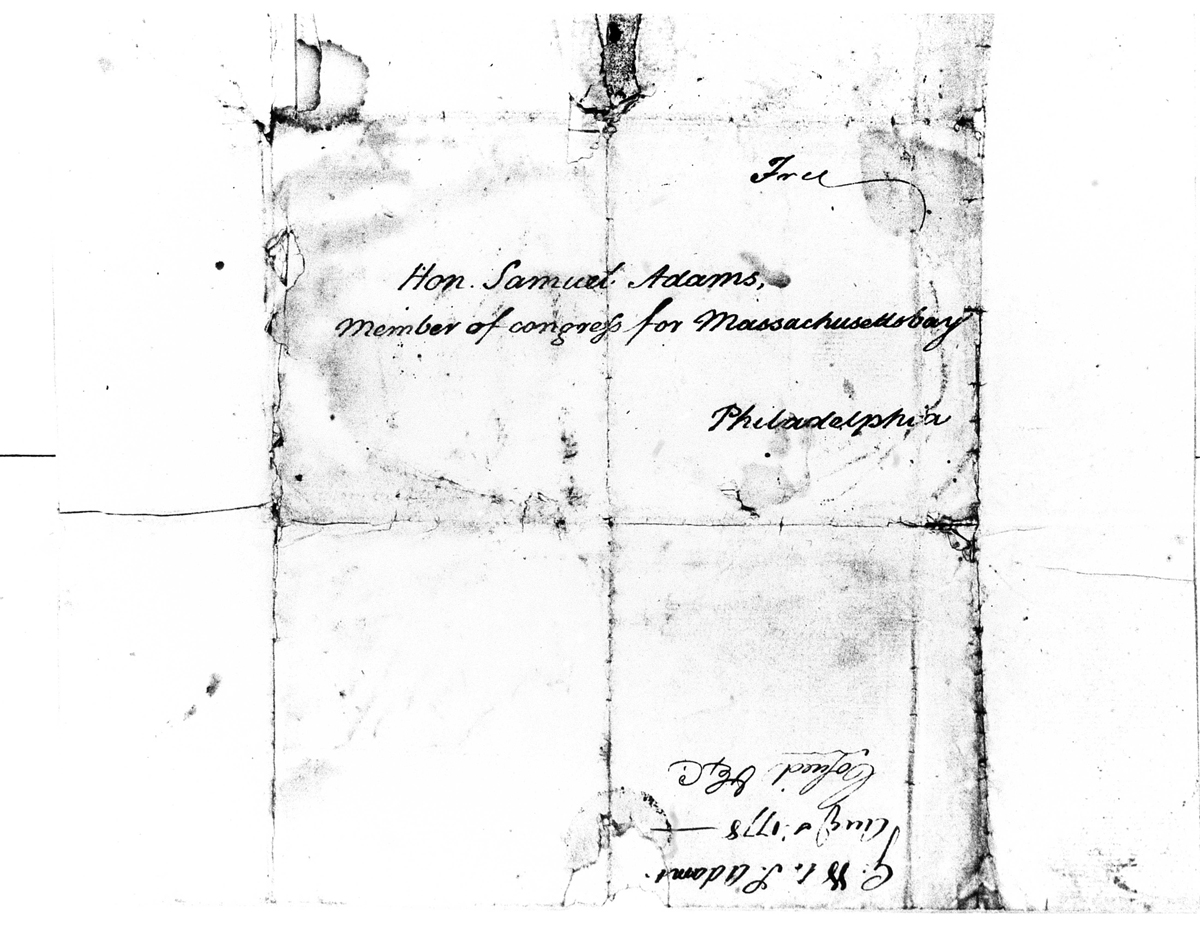 Free
Hon. Samuel Adams,
Member of congress for Massachusettsbay
Philadelphia
to S. Adams
Aug 1778
Copied